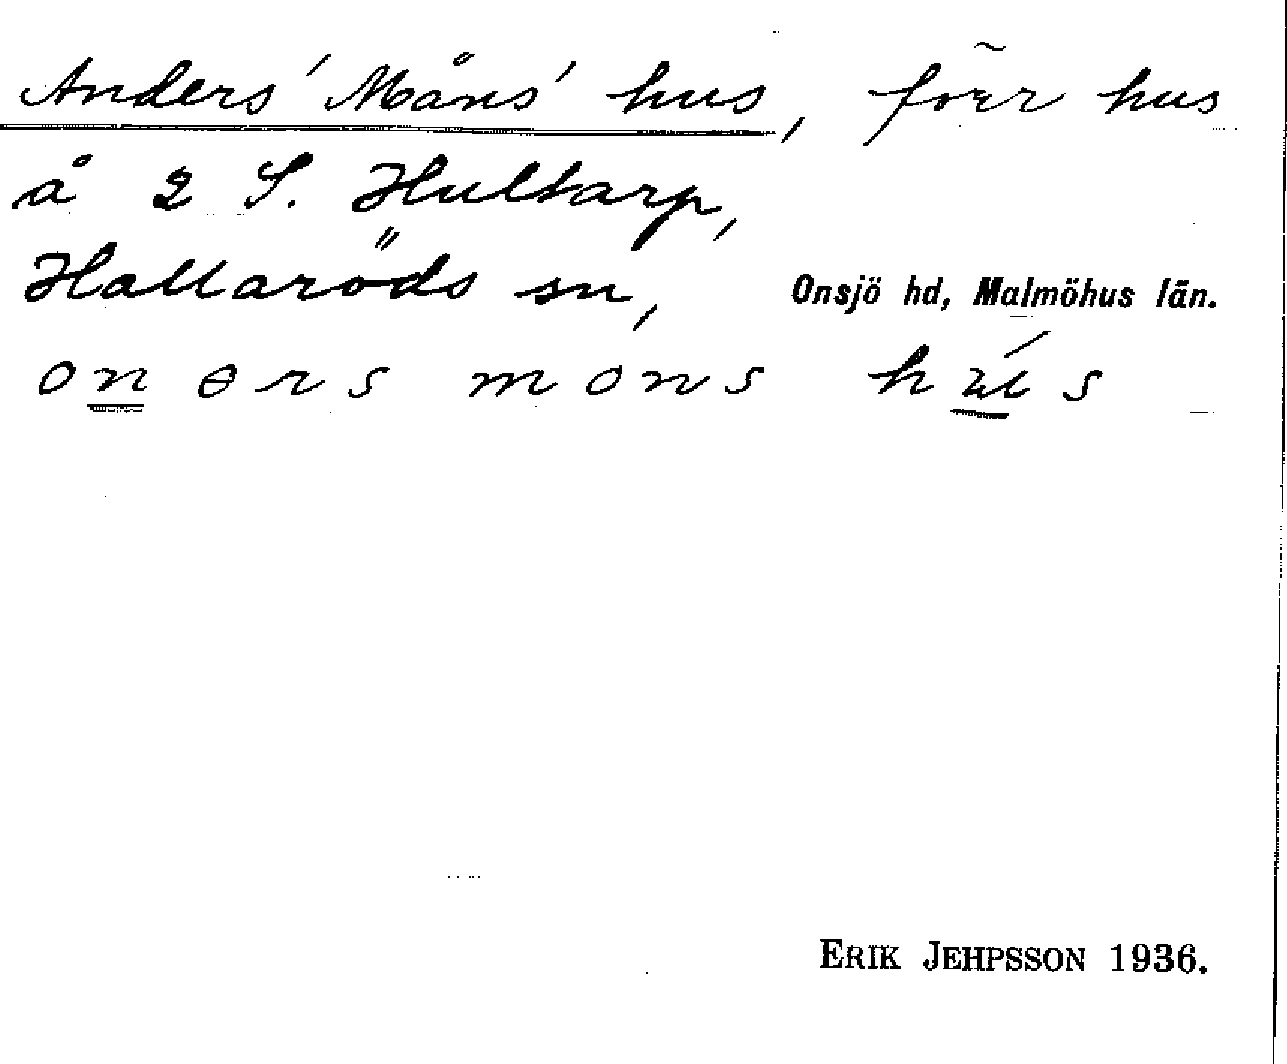 Anders' Måns' hus, förr hus
å 2 S. Hultarp,
Hallaröds sn, Onsjö hd, Malmöhus län.
on ɵrs mons hús
ERIK JEHPSSON 1936.